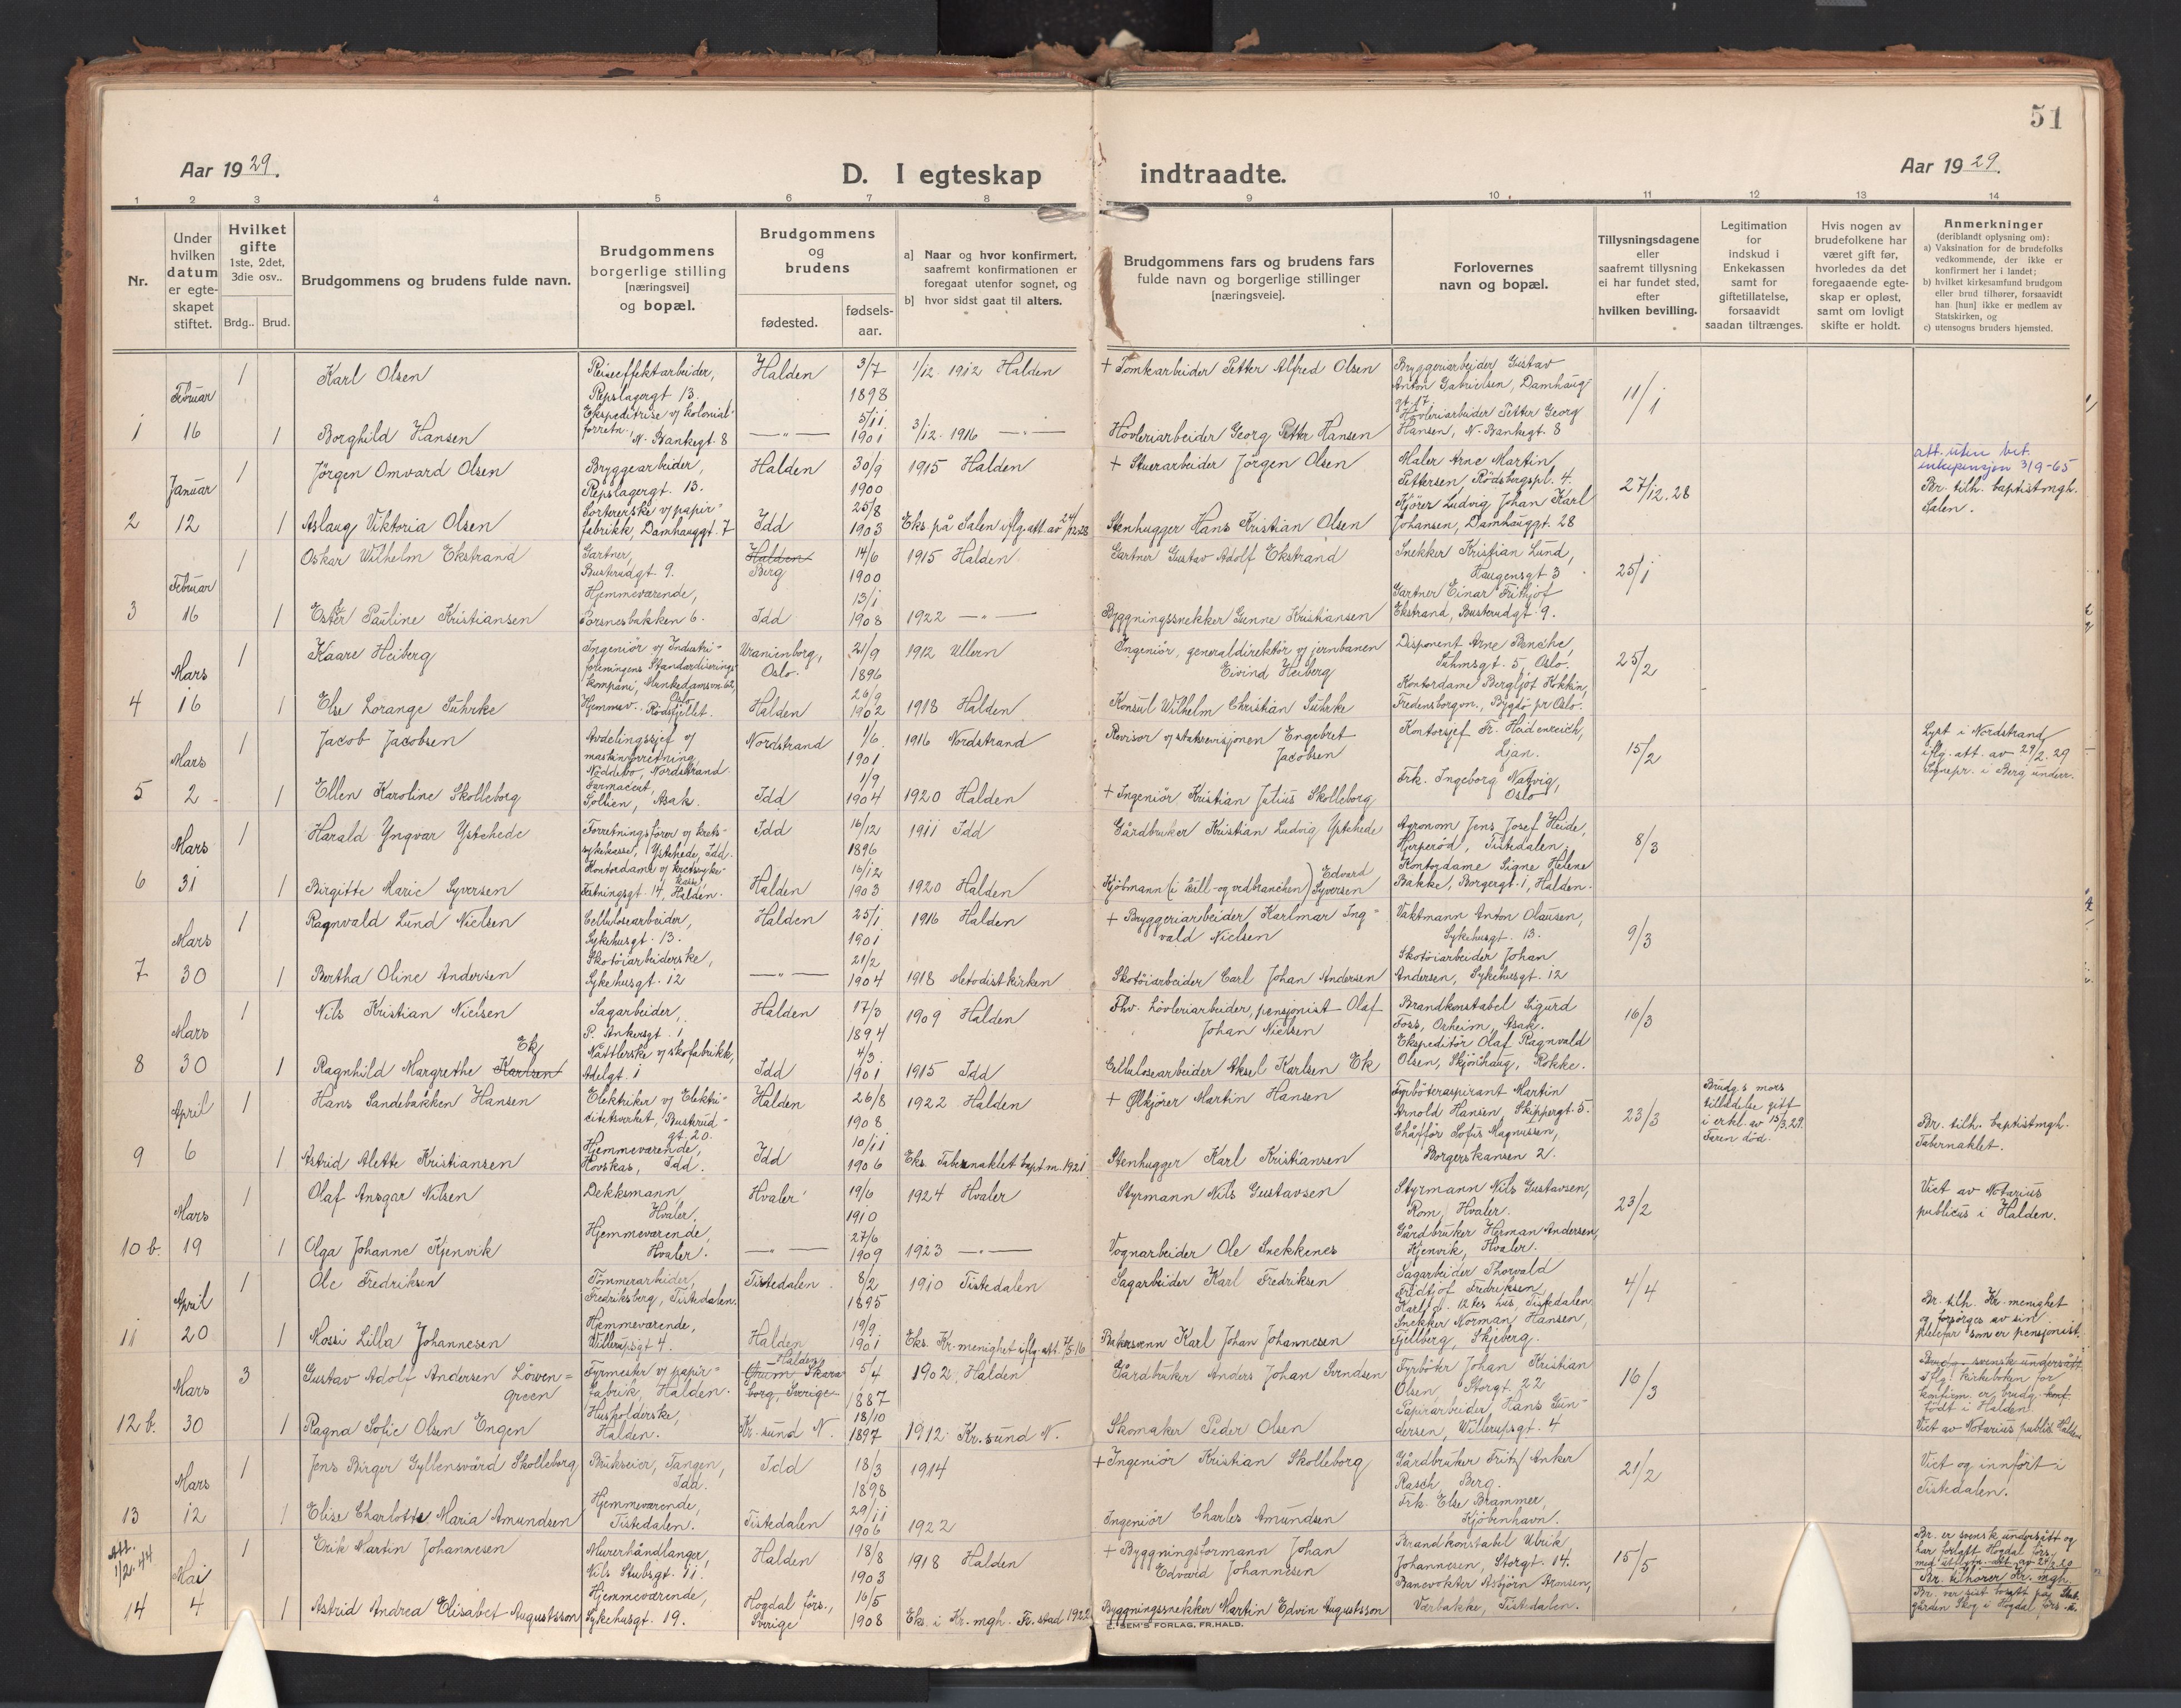 51
Aar 1929.
D. I egteskap indtraadte.
Aar 1929.
1 2 3 4 5 6 7 8 9 10 11 12 13 14
Nr.
Under hvilken datum er egteskapet stiftet.
Hvilket gifte
1ste, 2det, 3die osv..
Brdg.. Brud.
Brudgommens og brudens fulde navn.
Brudgommens borgerlige stilling [næringsvei] og bopæl.
Brudgommens og brudens
fødested.
fødsels-aar.
a) Naar og hvor konfirmert, saafremt konfirmationen er foregaat utenfor sognet, og
b) hvor sidst gaat til alters.
Brudgommens fars og brudens fars fulde navn og borgerlige stillinger [næringsveie].
Forlovernes navn og bopæl.
Tillysningsdagene eller saafremt tillysning ei har fundet sted, efter hvilken bevilling.
Legitimation for indskud i Enkekassen samt for giftetillatelse, forsaavidt saadan tiltrænges.
Hvis nogen av brudefolkene har været gift før, hvorledes da det foregaaende egteskap er opløst, samt om lovligt skifte er holdt.
Anmerkninger
(deriblandt oplysning om):
a) Vaksination for de brudefolks vedkommende, der ikke er konfirmert her i landet;
b) hvilket kirkesamfund brudgom eller brud tilhører, forsaavidt han [hun] ikke er medlem av Statskirken, og
c) utensogns bruders hjemsted.
Februar 1 Karl Olsen Reiseeffektarbeider, Repslagergt 13. Halden 3/7 1898 1/12 1912 Halden + Tomtearbeider Petter Alfred Olsen Bryggeriarbeider Gustav Anton Gabrielsen, Damhauggt 17. 11/1
1 16 1 Borghild Hansen Ekspeditrise v/ kolonialforretn., N. Bankegt. 8 —"— 5/11 1901 3/12 1916 —"— Høvleriarbeider Georg Petter Hansen Høvleriarbeider Petter Georg Hansen, N. Bankegt. 8
Januar 1 Jörgen Omvard Olsen Bryggearbeider, Repslagergt. 13. Halden 30/9 1900 1915 Halden + Stuerarbeider Jörgen Olsen Maler Arne Martin Pettersen, Rödsbergspl. 4. 27/12.28 att. uten bet. enkepensjon 3/9-65
2 12 1 Aslaug Viktoria Olsen Sortererske v/ papirfabrikk, Damhauggt. 7 Idd 25/8 1903 Eks. på Salen iflg. att. av 24/12.28 Stenhugger Hans Kristian Olsen Kjörer Ludvig Johan Karl Johansen, Damhauggt. 28 Br. tilh. baptistmgh. Salen.
Februar 1 Oskar Wilhelm Ekstrand Gartner, Busterudgt. 9. Halden Berg 14/6 1900 1915 Halden Gartner Gustav Adolf Ekstrand Snekker Kristian Lund, Haugensgt 3 25/1
3 16 1 Ester Pauline Kristiansen Hjemmeværende, Porsnesbakken 6. Idd 13/1 1908 1922 —"— Byggningssnekker Gunne Kristiansen Gartner Einar Fritjof Ekstrand, Busterudgt. 9.
Mars 1 Kaare Heiberg Ingeniör v/ Industriforeningens Standardiseringskompani, Munkedamsvn. 62, Oslo Uranienborg, Oslo. 21/9 1896 1912 Ullern Ingeniör, generaldirektör v/ jernbanen Eivind Heiberg Disponent Arne Benche, Suhmsgt. 5, Oslo. 25/2
4 16 1 Else Lorange Suhrke Hjemmev. Rödsfjellet. Halden 26/9 1902 1918 Halden Konsul Wilhelm Christian Suhrke Kontordame Bergljot Kokkin, Fredensborgvn., Bygdö pr Oslo.
Mars 1 Jacob Jacobsen Avdelingssjef v/ maskinforretning, Nöddebo, Nordstrand. Nordstrand 1/6 1901 1916 Nordstrand Revisor v/ statsrevisjonen Engebret Jacobsen Kontorsjef Fr. Heidenreich, Ljan. 15/2 Lyst i Nordstrand iflg. att. av 27/2.29 Sognepr. i Berg underr.
5 2 1 Ellen Karoline Skolleborg Farmaceut, Sollien, Asak. Idd 1/9 1904 1920 Halden + Ingeniör Kristian Julius Skolleborg Frk. Ingeborg Natvig, Oslo
Mars 1 Harald Yngvar Ystehede Forretningsförer v/ kretssykekasse, Ystehede, Idd. Idd 16/12 1896 1911 Idd Gårdbruker Kristian Ludvig Ystehede Agronom Jens Josef Heide, Hjerperöd, Tistedalen. 8/3
6 31 1 Birgitte Marie Syversen Kontordame v/ kretssykekasse, Festningsgt. 14, Halden. Halden 16/12 1903 1920 Halden Kjöbmann (i kull- og vedbranchen) Edvard Syversen Kontordame Signe Helene Bakke, Borgergt. 1, Halden.
Mars 1 Ragnvald Lund Nielsen Cellulosearbeider, Sykehusgt. 13. Halden 25/1 1901 1916 Halden + Bryggeriarbeider Karlmar Ingvald Nielsen Vaktmann Anton Olausen, Sykehusgt. 13. 9/3
7 30 1 Bertha Oline Andersen Skotöiarbeiderske, Sykehusgt. 12 —"— 21/2 1904 1918 Metodistkirken Skotöiarbeider Carl Johan Andersen Skotöiarbeider Johan Andersen, Sykehusgt. 12
Mars 1 Nils Kristian Nielsen Sagarbeider, P. Ankersgt. 1 Halden 17/3 1894 1909 Halden Fhv. hövleriarbeider, pensjonist Olaf Johan Nielsen Brandkonstabel Sigurd Foss, Orheim, Asak. 16/3
8 30 1 Ragnhild Margrethe Karlsen Ek Nåttlerske v/ skofabrikk, Adelgt. 1 Idd 4/3 1901 1915 Idd Cellulosearbeider Aksel Karlsen Ek Ekspeditör Olaf Ragnvald Olsen, Skjönhaug, Rokke.
April 1 Hans Sandebakken Hansen Elektriker v/ Elektricitetsverket, Busterudgt. 20. Halden 26/8 1908 1922 Halden + Ølkjører Martin Hansen Fyrböteraspirant Martin Arnold Hansen, Skippergt. 5. 23/3 Brudg.s mors tilladelse gitt i erkl. av 15/3.29. Faren död.
9 6 1 Astrid Alette Kristiansen Hjemmeværende, Hovskas, Idd. Idd 10/11 1906 Eks. Tabernaklet bapt.m. 1921 Stenhugger Karl Kristiansen Chafför Sofus Magnussen, Borgerskansen 2. Br. tilh. baptistmgh. Tabernaklet.
Mars 1 Olaf Ansgar Nilsen Dekksmann, Hvaler. Hvaler 19/6 1910 1924 Hvaler Styrmann Nils Gustavsen Styrmann Nils Gustavsen, Rom, Hvaler. 23/2 Viet av Notarius publicus i Halden.
10 b. 19 1 Olga Johanne Kjenvik Hjemmeværende, Hvaler. —"— 27/6 1909 1923 —"— Vognarbeider Ole Snekkenes Gårdbruker Herman Andersen, Kjenvik, Hvaler.
April 1 Ole Fredriksen Tömmerarbeider, Fredriksberg, Tistedalen. Tistedalen 8/2 1895 1910 Tistedalen Sagarbeider Karl Fredriksen Sagarbeider Thorvald Fridtjof Fredriksen, 12tes hus, Tistedalen 4/4
11 20 1 Mossi Lilla Johannesen Hjemmeværende, Willerupsgt 4. Halden 19/9 1901 Eks. Kr. menighet iflg. att. 7/5-16 Bakersvenn Karl Johan Johannesen Snekker Norman Hansen, Fjellberg, Skjeberg. Br. tilh. Kr. menighet og forsörges av sin pleiefar som er pensjonist.
Mars 3 Gustav Adolf Andersen Löwengreen Fyrmester v/ papirfabrik, Halden. Skaraborg, Sverige Halden 5/4 1887 1902 Halden Gårdbruker Anders Johan Svendsen Fyrböter Johan Kristian Olsen, Storgt. 22 16/3 Brudg. svensk undersått. Iflg. kirkeboken for konfirm. er brudg. konf. födt i Halden.
12 b. 30 1 Ragna Sofie Olsen Engen Husholderske, Halden. Kr.sund N. 18/10 1897 1912 Kr.sund N. Skomaker Peder Olsen Papirarbeider Hans Gundersen, Willerupsgt. 4 Viet av Notarius public Halden
Mars 1 Jens Birger Gyllensvärd Skolleborg Brukseier, Tangen, Idd. Idd 18/3 1898 1914 + Ingeniör Kristian Skolleborg Gårdbruker Fritz Anker Rasch, Berg. 21/2 Viet og innfört i Tistedalen.
13 12 1 Elise Charlotte Maria Amundsen Hjemmeværende, Tistedalen. Tistedalen 29/11 1906 1922 Ingeniör Charles Amundsen Frk. Else Brammer, Kjöbenhavn.
Att. 1/2.44 Mai 1 Erik Martin Johannesen Murerhåndlanger, Nils Stubsgt. 11. Halden 18/8 1903 1918 Halden + Byggningsformann Johan Edvard Johannesen Brandkonstabel Ulrik Johannesen, Storgt. 14. 15/5 Br. er svensk undersått og har forlatt Hogdal förs. med utflytn. att. av 24/2.29
14 4 1 Astrid Andrea Elisabet Augustsson Hjemmeværende, Sykehusgt. 19. Hogdal förs., Sverige 16/5 1908 Eks. i Kr. mgh. Fr.stad 1922 Byggningssnekker Martin Edvin Augustsson Banevokter Asbjörn Aronsen, Værbakke, Tistedalen. Br. tilhörer Kr. mgh. Br. var sist bosatt på gården Skog i Hogdal förs.
E. SEM'S FORLAG, FR.HALD.